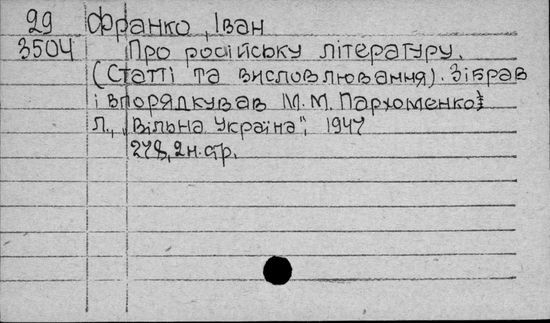 29 Франко, Іван
3504 Про російську літературу.
(Статті та висловлювання). Зібрав
і впорядкував М. М. Пархоменко
Л., „Вільна Україна", 1947
278, 2 н. стр.